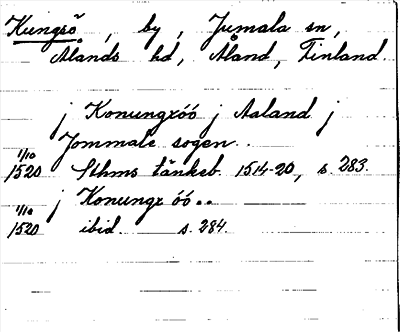 Kungsö, by, Jumala sn,
Ålands hd, Åland, Finland.
j Konungxöö j Aaland j
Jommale sogen..
1/10 1520 Sthms tänkeb. 1514-20, s. 283.
j Konungx öö..
1/10 1520 ibid. s. 284.